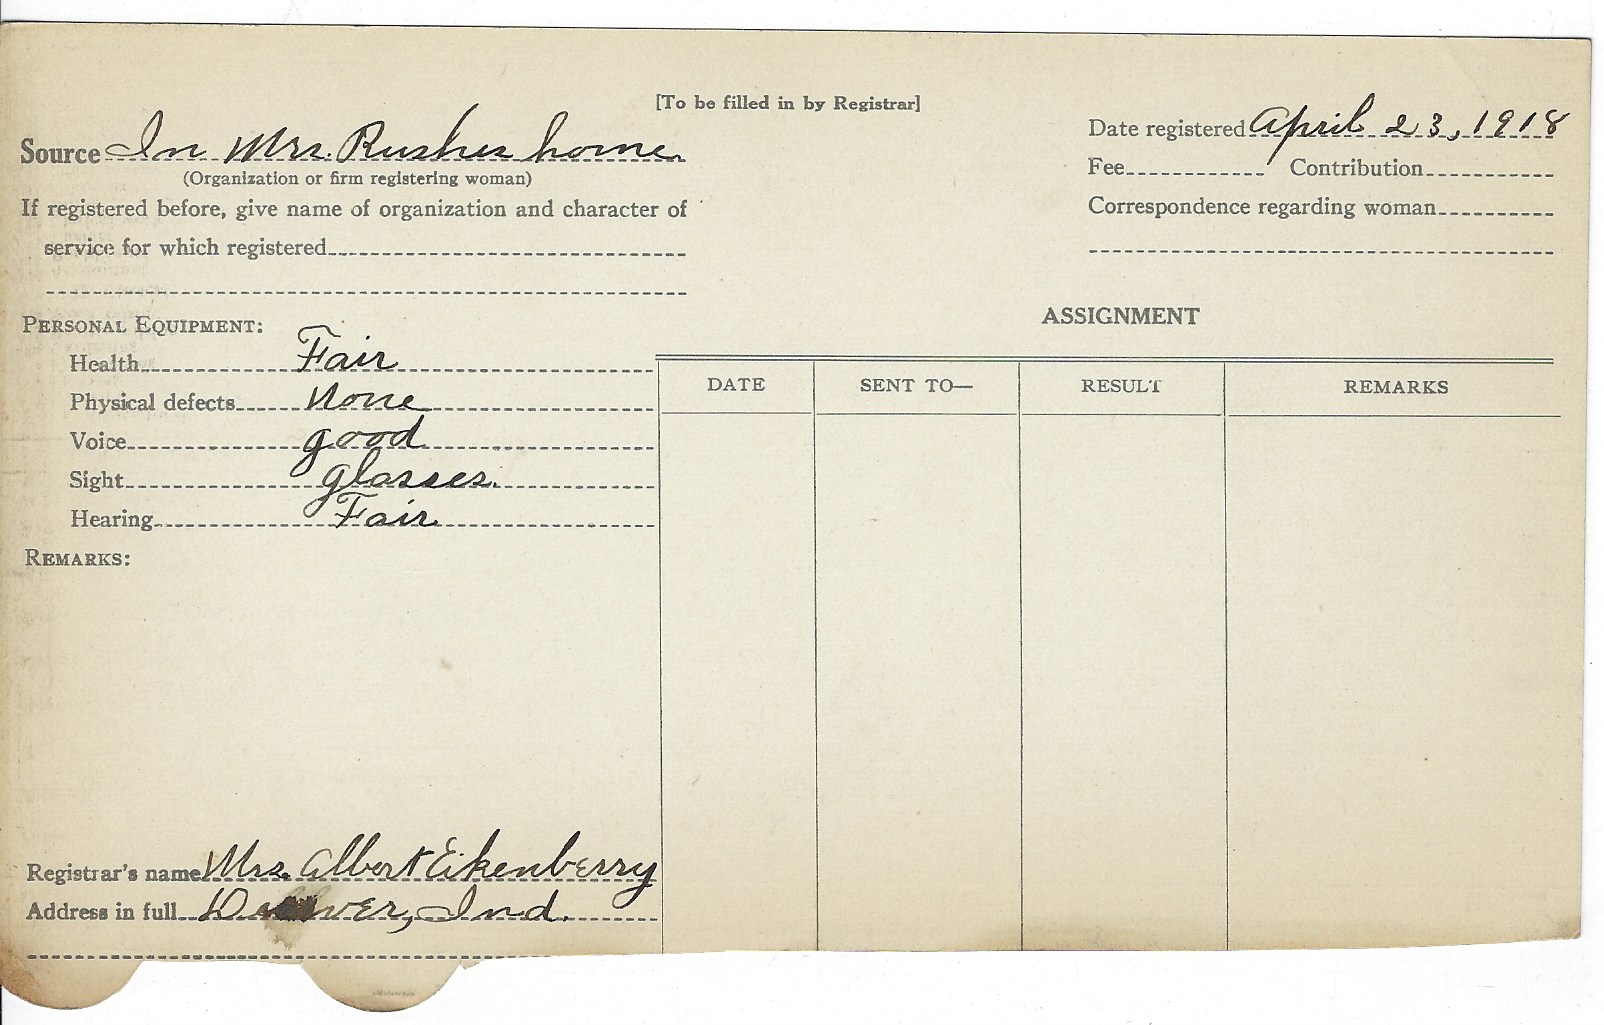 [To be filled in by Registrar]
Source In Mrs. Rushes home.
(Organization or firm registering woman)
If registered before, give name of organization and character of
service for which registered
Date registered April 23, 1918
Fee Contribution
Correspondence regarding woman
PERSONAL EQUIPMENT:
Health Fair
Physical defects None
Voice good
Sight glasses.
Hearing Fair
REMARKS:
ASSIGNMENT
DATE SENT TO— RESULT REMARKS
Registrar's name Mrs. Albert Eikenberry
Address in full Denver, Ind.